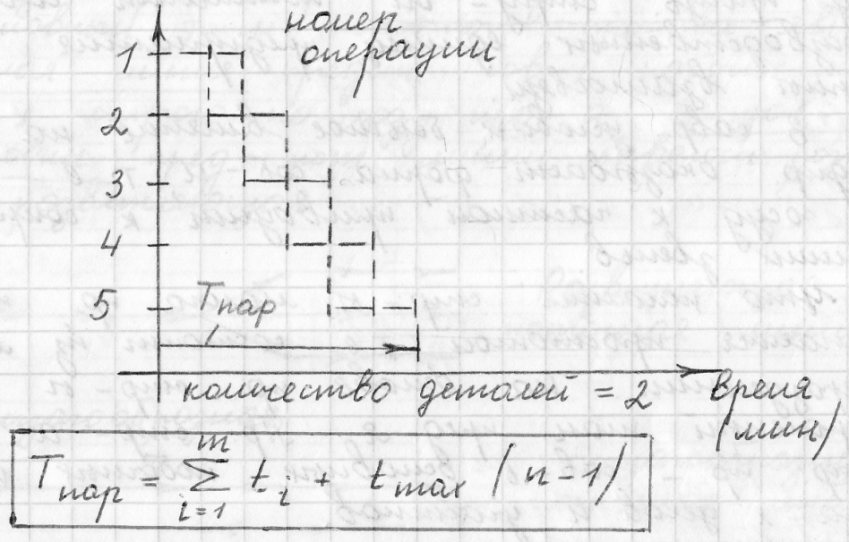 номер
операции
1
2
3
4
5
Tпар
количество деталей = 2 время
(мин)
Tпар = ∑ i=1 m ti + tmax (n-1)